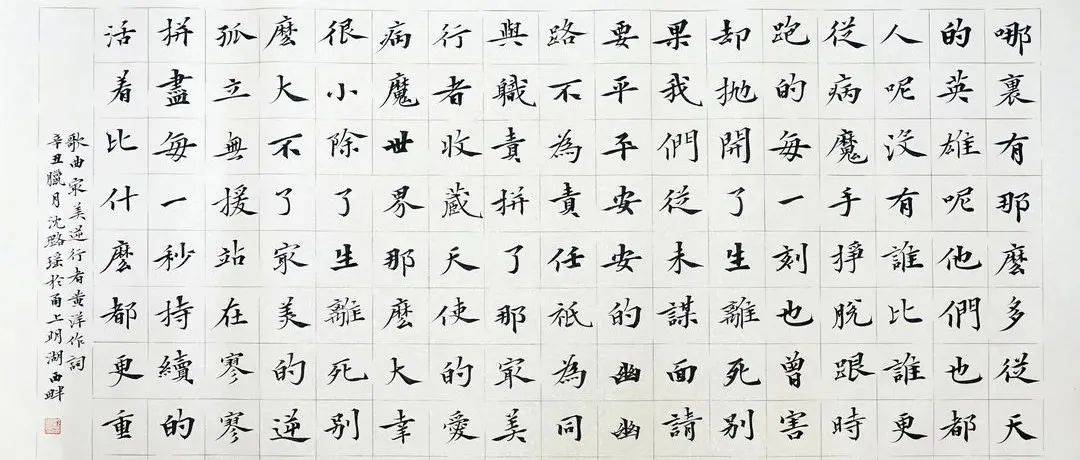 哪裏有那麽多從天
的英雄呢他們也都
人呢沒有誰比誰更
從病魔手掙脫跟時
跑的每一刻也曾害
却抛開了生離死别
果我們從未謀面請
要平平安安的幽幽
路不為責任祇為同
與職責拼了那冣美
行者收藏天使的愛
病魔世界那麽大幸
很小除了生離死别
麽大不了冣美的逆
孤立無援站在寥寥
拼盡每一秒持續的
活着比什麽都更重
歌曲冣美逆行者黄洋作詞
辛丑臘月沈璐瑶於甬上明湖西畔